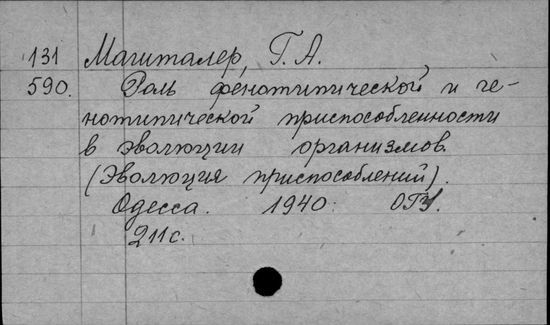 131 Магиталер, Г. А.
590. Роль фенотипической и ге-
нотипической приспособленности
в эволюции организмов.
(Эволюция приспособлений).
Одесса. 1940. ОГУ.
211с.